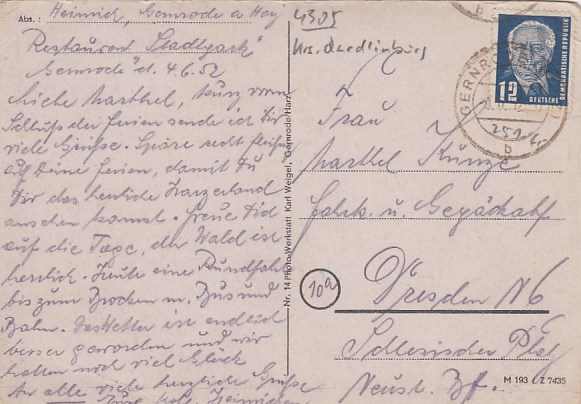 Abs.: Heinrich, Gernrode a Harz
Restaurant "Stadtpark"
Gernrode d. 4.6.52
Liebe Marthel, kurz vorm
Schluß der Ferien sende ich Dir
viele Grüße. Spare recht fleißig
auf Deine Ferien, damit Du
Dir das herrliche Harzerland
ansehen kannst. Freue Dich
auf die Tage, der Wald ist
herrlich. Heute eine Rundfahrt
bis zum Brocken m. Bus und
Bahn. Das Wetter ist endlich
besser geworden und wir
hatten noch viel Glück
An alle viele herzliche Grüße
Nr. 14 Photo-Werkstatt Karl Weigel, Gernrode/Harz
4305
Krs. Quedlinburg
12
DEUTSCHE
DEMOKRATISCHE REPUBLIK
GERNRODE
b
Frau
Marthel Kunze
Fahrk. u. Gepäckabf
10a
Dresden N6
Schlesischer Platz
Neust. Bf.
M 193 Z 7435